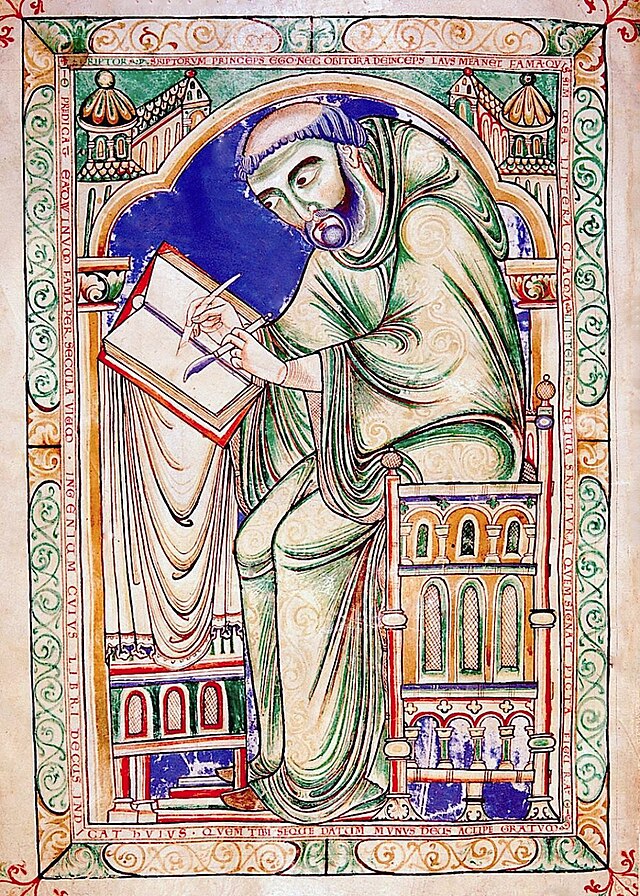 SRIPTORVM PRINCEPS EGO NEC OBITVRA DEINCEPS LAVS MEA NEC FAMA QV
SIM MEA LITTERA CLAMA LITTERA TE TVA SCRIPTVRA QVEM SIGNAT PICTA FIGVRA
PREDICAT EADWINVM FAMA PER SECVLA VIVVM · INGENIVM CVIVS LIBRI DECVS IND
CAT HVIVS · QVEM TIBI SEQVE DATVM MVNVS DEVS ACIPE GRATVM